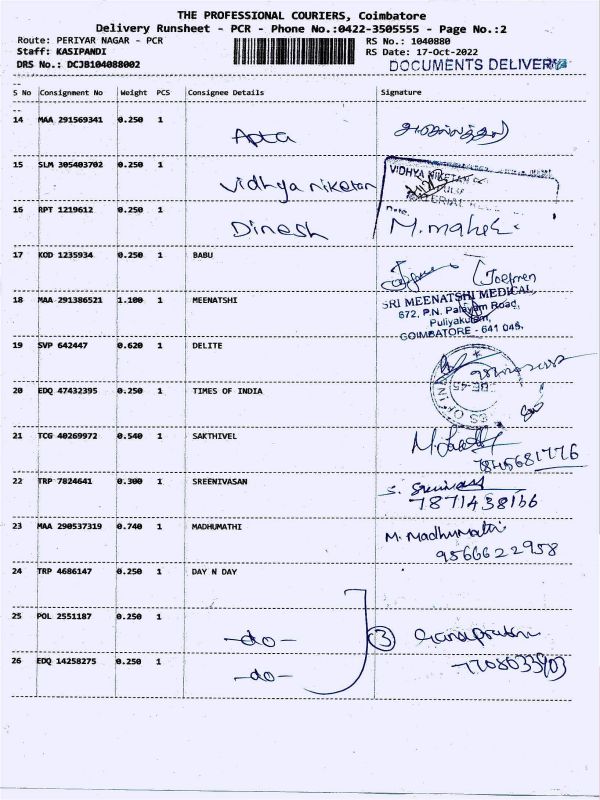 THE PROFESSIONAL COURIERS, Coimbatore
Delivery Runsheet - PCR - Phone No.:0422-3505555 - Page No.:2
Route: PERIYAR NAGAR - PCR RS No.: 1040880
Staff: KASIPANDI RS Date: 17-Oct-2022
DRS No.: DCJB104088002 DOCUMENTS DELIVERY
S No Consignment No Weight PCS Consignee Details Signature
14 MAA 291569341 0.250 1 Apta
15 SLM 305403702 0.250 1 Vidhya niketan VIDHYA NIKETAN
16 RPT 1219612 0.250 1 Dinesh
17 KOD 1235934 0.250 1 BABU
18 MAA 291386521 1.100 1 MEENATSHI SRI MEENATSHI MEDICAL,
672, P.N. Palayam Road,
Puliyakulam,
COIMBATORE - 641 045.
19 SVP 642447 0.620 1 DELITE
20 EDQ 47432395 0.250 1 TIMES OF INDIA
21 TCG 40269972 0.540 1 SAKTHIVEL
7845681776
22 TRP 7824641 0.300 1 SREENIVASAN S. Srinivasa
7871438166
23 MAA 290537319 0.740 1 MADHUMATHI M. Madhumathi
9566622958
24 TRP 4686147 0.250 1 DAY N DAY
25 POL 2551187 0.250 1 -do- 3
26 EDQ 14258275 0.250 1 -do- 7708033903